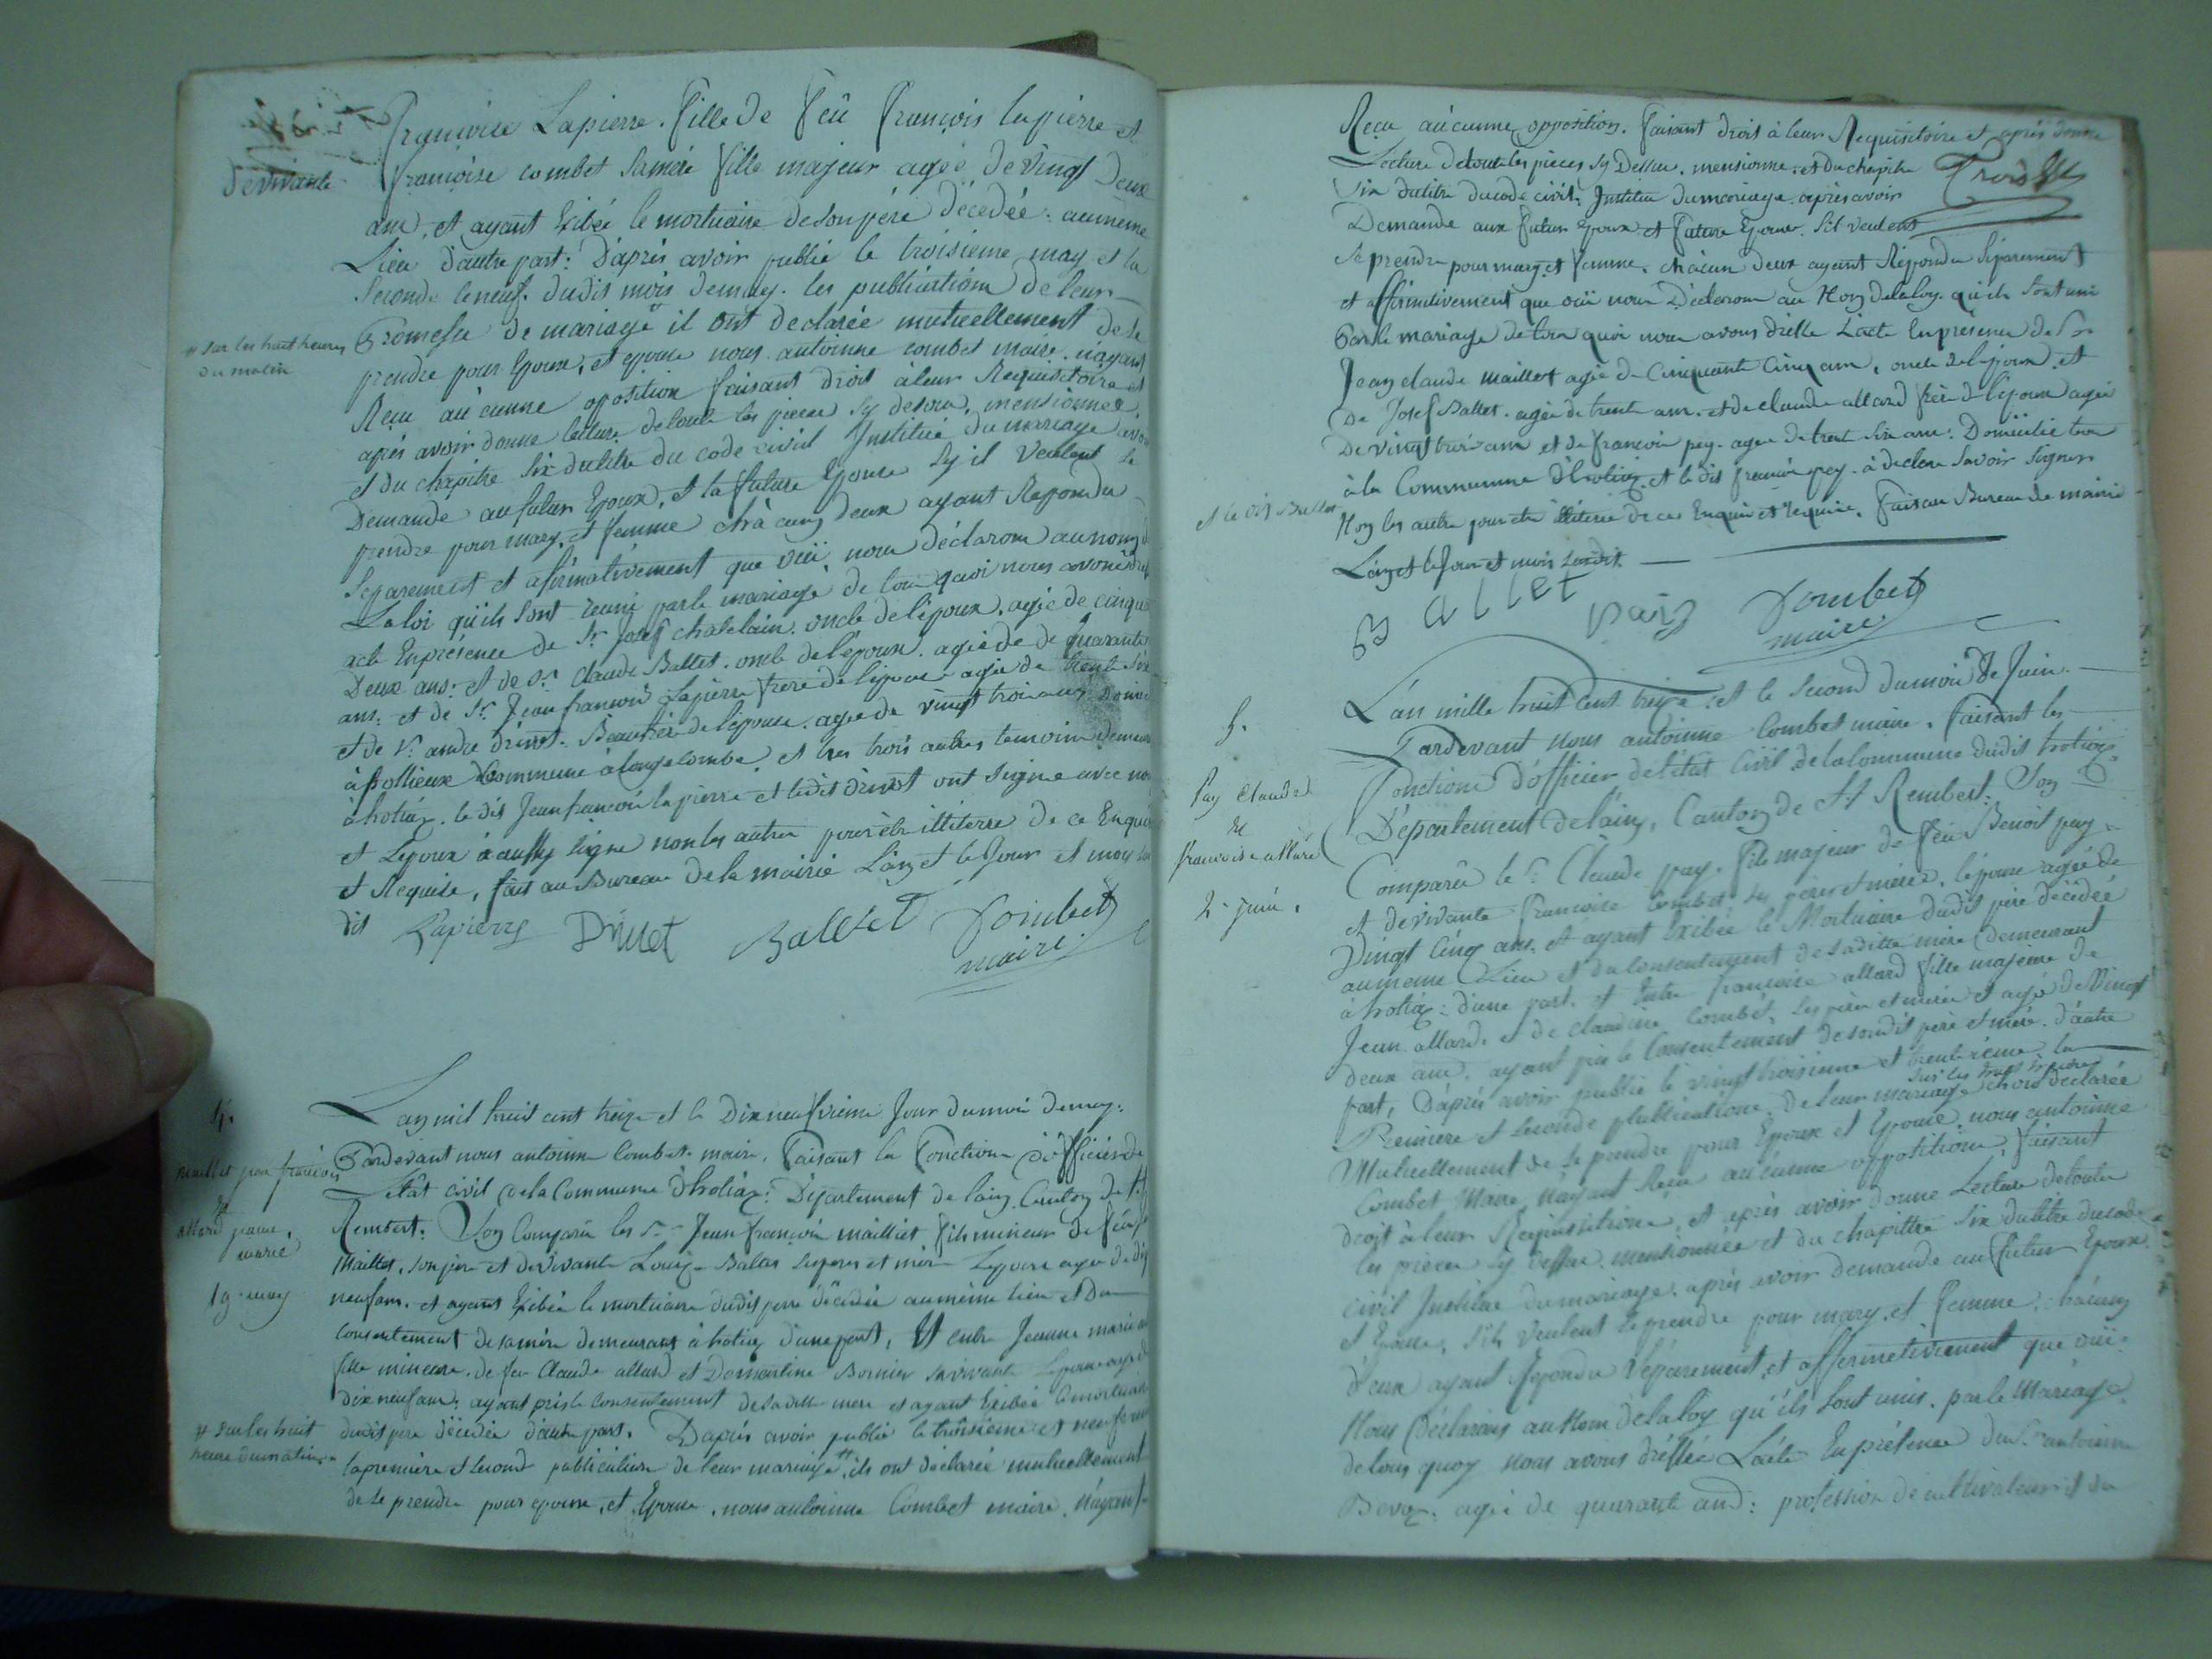 de vivante
françoise Lapierre. fille de feü françois lapierre et
françoise combet sa mère fille majeur agée de vingt deux
ans, et ayant Exibée le mortuaire de son père décédée. au même
Lieu d'autre part: D'après avoir publié le troisieme may et la
seconde le neuf. dudit mois de may. les publications de leur
Promesse de mariage il ont declarée mutuellement de se
# sur les huit heures
du matin
prendre pour Epoux, et epouse nous antoinne combet maire. n'ayant
Reçu aücunne oposition faisant droit à leur Requisitoire et
après avoir donne lecture de toute les pieces sy desus, mensionnes,
et du chapitre six du titre du code civil Institué du mariage avoir
Demandé au futur Epoux, et la future Epouse sy il veulent se
prendre pour mary, et femme chàcung deux ayant Repondu
separement et afirmativement que oüi, nous déclarons au nom de
La loi qu'ils sont reuni par le mariage de tou quoi nous avons
acte En présence de Sr. Josef chatelain. oncle de l'époux. agée de cinquante
Deux ans: et de Sr. Claude Ballet. oncle de l'époux. agée de quarante
ans. et de Sr. Jean francois Lapierre frere de l'épouse agée de trente six
et de Sr. andre druet. Beaufrère de l'épouse. agée de vingt trois ans
à pollieux commune à longecombe, et les trois autres temoins demeurant
à hotiax. le dit Jean francois lapierre et ledit druet ont signe avec nous
et Lepoux à aussy signe non les autres pour être illiterre de ce Enquis
et Requise, fait au Bureau de la mairie L'an et le Jour et mois
dit Lapierre Druet Ballet Combet
maire
4.
Maillet jean francois
&
allard jeanne
marie
19 may
L'an mil huit cent treize et le Dix neufvieme Jour du moi de may.
Pardevant nous antoinne Combet maire. faisant la fonctions d'officier de
L'etat civil de la Commune d'hotiax: Département de l'ain Canton de St
Rembert. Son Comparu les Sr. Jean françois mailliet fils mineur de feü
Maillet, son père et de vivante Louise Ballet ses peres et mere Lepoux agée de dix
neuf ans. et ayant Exibée le mortuaire dudit perre décédée au même lieu et Du
Consentement de sa mère demeurant à hotiax d'une part, Et entre Jeanne marie
fille mineure. de feu Claude allard et Demontine Bornier sa vivante Lepouse agée de
Dix neuf ans: ayant pris le Consentement de la ditte mere et ayant Exibée le mortuaire
# sur les huit
heure du matin.
dudit pere décédée d'autre part. D'après avoir publié le troisieme et neuf
la première et second publication de leur mariage # ils ont declarée mutuellement
de se prendre pour epoux, et Epouse. nous antoinne Combet maire. N'ayant
Reçu aücunne opposition. faisant droit à leur Requisitoire et après donne
Lecture de toute les pièces sy Dessus. mensionne, et du chapitre
six du titre du code civil; Institue du mariage. après avoir
Demande aux futur epoux et future Epouse. s'il veulent
se prendre pour mary, et femme. chàcun deux ayant Répondu séparement
et affirmativement que oüi nous Déclarons au Nom de la loy. qu'ils sont uni
Par le mariage de tou quoi nous avons drésse L'acte En présence de Sr
Jean claude maillet agée de Cinquante Cinq ans, oncle de l'époux, et
De Josef Ballet. agée de trente ans. et de claude allard frère de l'épouse agée
De vingt trois ans et de francois pey. agée de trente six ans: Domicilié tous
à la Communne d'hotiax, et le dit francois pey. à declare savoir signer
et le dit Ballet
Non les autre pour etre illiterre de ce Enquis et Requise. Fait au Bureau de mairie
L'an et le Jour et mois susdit.
BALLET Paiz Combet
maire
5.
Pay Claude
&
francoise allard
2. juin.
L'an mille huit cent treize et le second du mois de Juin.
Pardevant Nous antoinne Combet maire. faisant les
fonctions d'officier de l'état Civil de la Commune dudit hotiax
Département de l'ain, Canton de St Rembert. Son
Comparû le Sr Claude pay. fils majeur de feü Benoit pay
et de vivante francoise Combet ses père et mère. l'époux agée de
Vingt Cinq ans. et ayant Exibée le Mortuaire dudit père décédée
au meme Lieu et du Consentement de sa ditte mère demeurant
à hotiax: d'une part. et Entre francoise allard fille majeure de
Jean allard. et de claudine Combét. ses père et mère et agée de Vingt
deux ans. ayant pris le Consentement de son dit père et mère. d'autre
part, D'après avoir publié le vingt troisieme et trentieme la
Premiere et seconde publications. de leur mariage ils ont déclarée
Mutuellement de se prendre pour Epoux et Epouse. nous antoinne
Combet Maire N'ayant Reçu aücunne oppositions, faisant
droit à leur Requisitions, et après avoir donne Lecture de toutes
les pièces sy dessus. mensionnée et du chapittre six du titre du code
civil Institue du mariage. après avoir demande au futur Epoux
et Epouse, s'ils veulent se prendre pour mary, et femme, chàcung
d'eux ayant Repondu séparement, et affermativement que oüi.
Nous Déclarons au Nom de la loy qu'ils sont unis. par le Mariage
de tous quoy Nous avons dréssée L'acte En présence du Sr antoinne
Bevoz. agée de quarante ans: profession de cultivateur et du